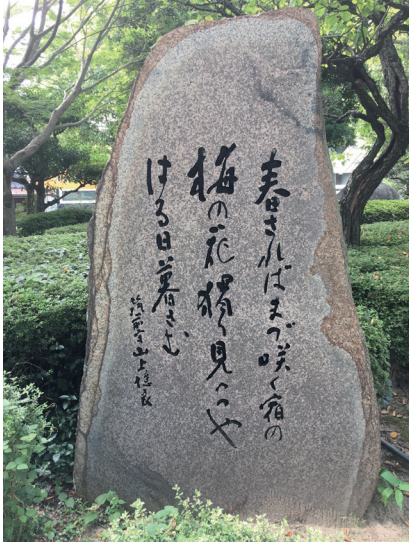 春さればまづ咲く宿の
梅の花獨り見つゝや
はる日暮さむ
筑前守山上憶良